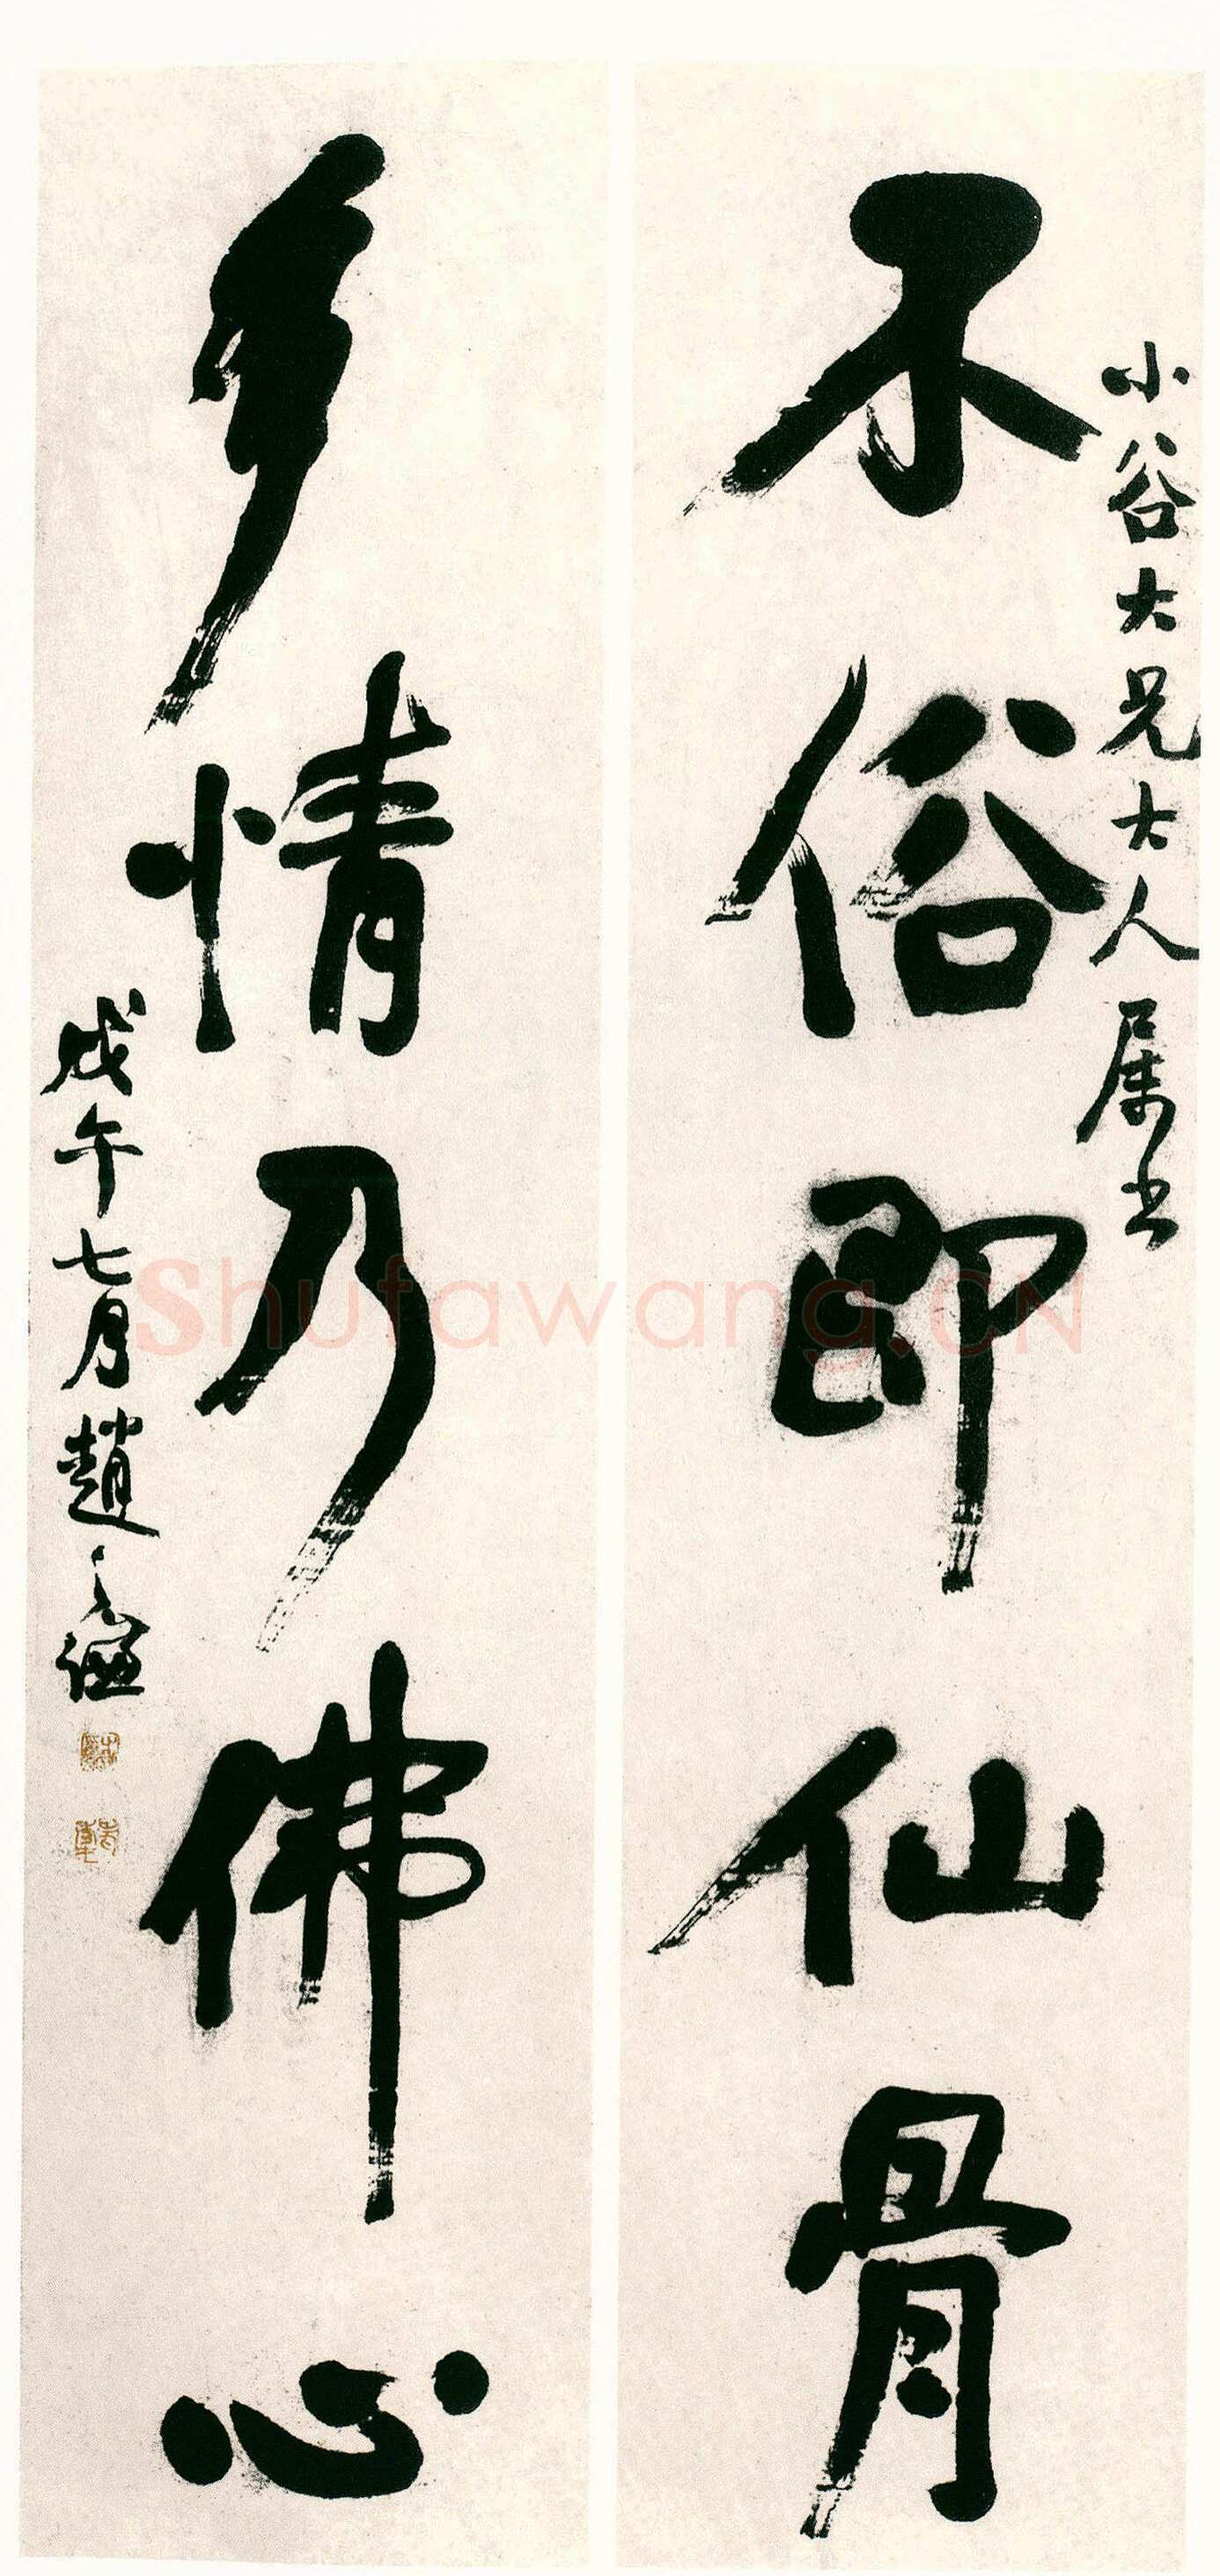 小谷大兄大人属书
不俗即仙骨
多情乃佛心
戊午七月趙之谦
Shufawang.CN